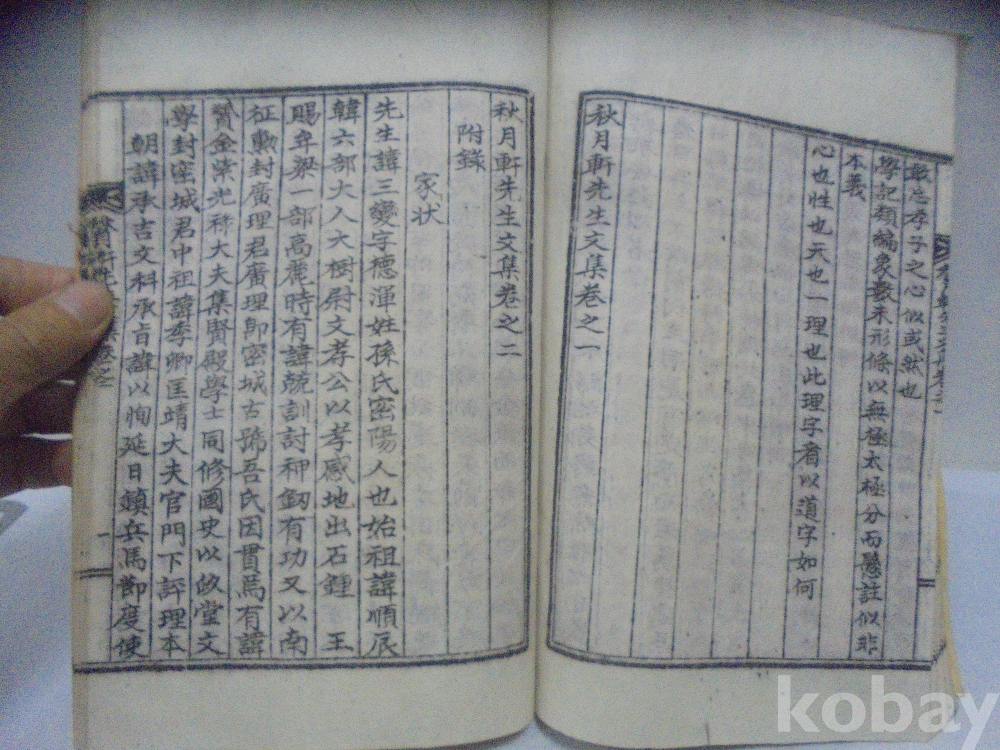 敢忘孝子之心似或然也
學記類編象數未形條以無極太極分而懸註似非
本義
心也性也天也一理也此理字看以道字如何
秋月軒先生文集卷之一
秋月軒先生文集卷之二
附錄
家狀
先生諱三變字德渾姓孫氏密陽人也始祖諱順辰
韓六部大人大樹尉文孝公以孝感地出石鍾 王
賜牟梁一部高麗時有諱兢訓討神釰有功又以南
征勳封廣理君廣理卽密城古號吾氏因貫焉有諱
贇金紫光祿大夫集賢殿學士同修國史以皎堂文
學封密城君中祖諱李卿匡靖大夫官門下評理本
朝諱承吉文科承旨諱以恂延日鎭兵馬節度使
kobay